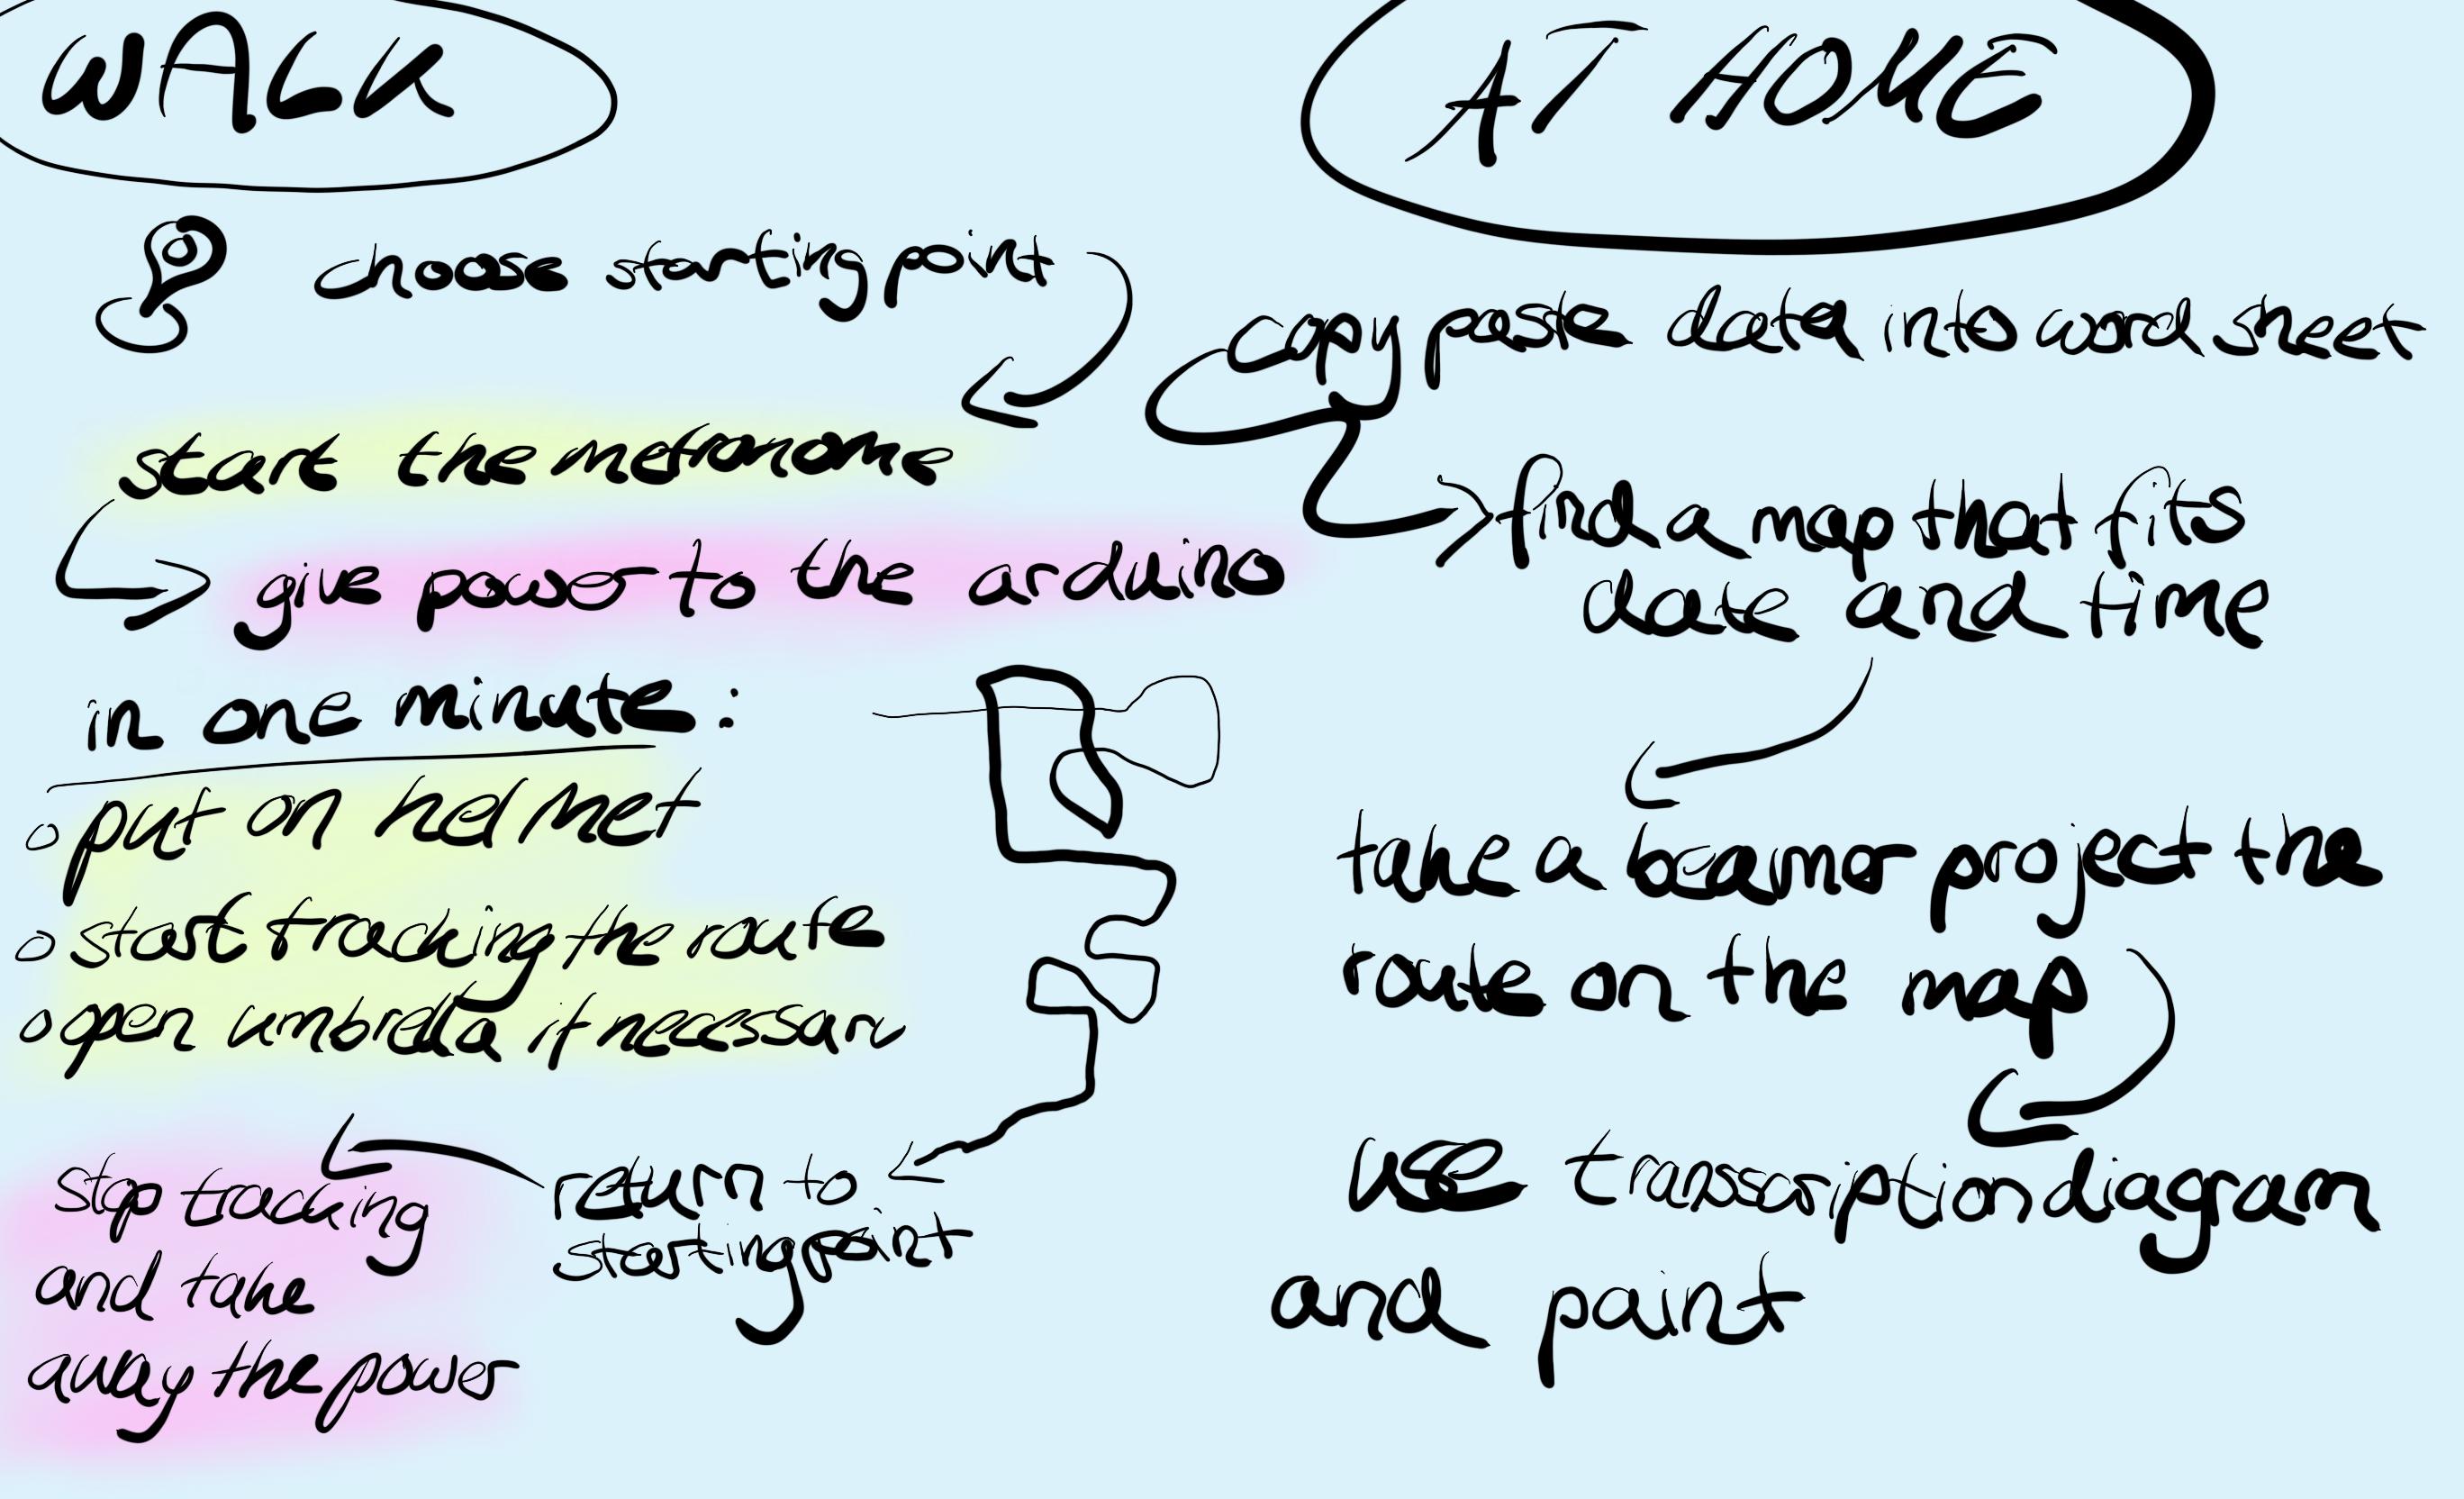 WALK
choose starting point
start the metronome
give power to the arduino
in one minute:
put on helmet
start tracking the route
open umbrella if necessary
return to
starting point
stop tracking
and take
away the power
AT HOME
copy paste data into word sheet
find a map that fits
date and time
take a beamer project the
route on the map
use transcription diagram
and paint